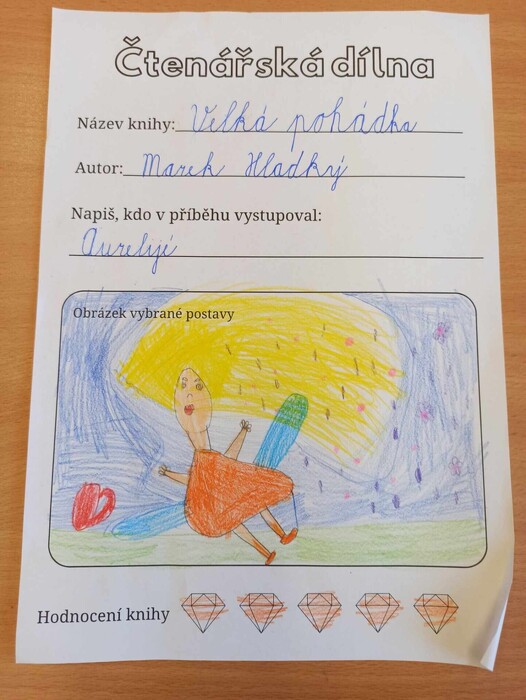 Čtenářská dílna
Název knihy: Velká pohádka
Autor: Marek Hladký
Napiš, kdo v příběhu vystupoval:
Aurelyjé
Obrázek vybrané postavy
Hodnocení knihy